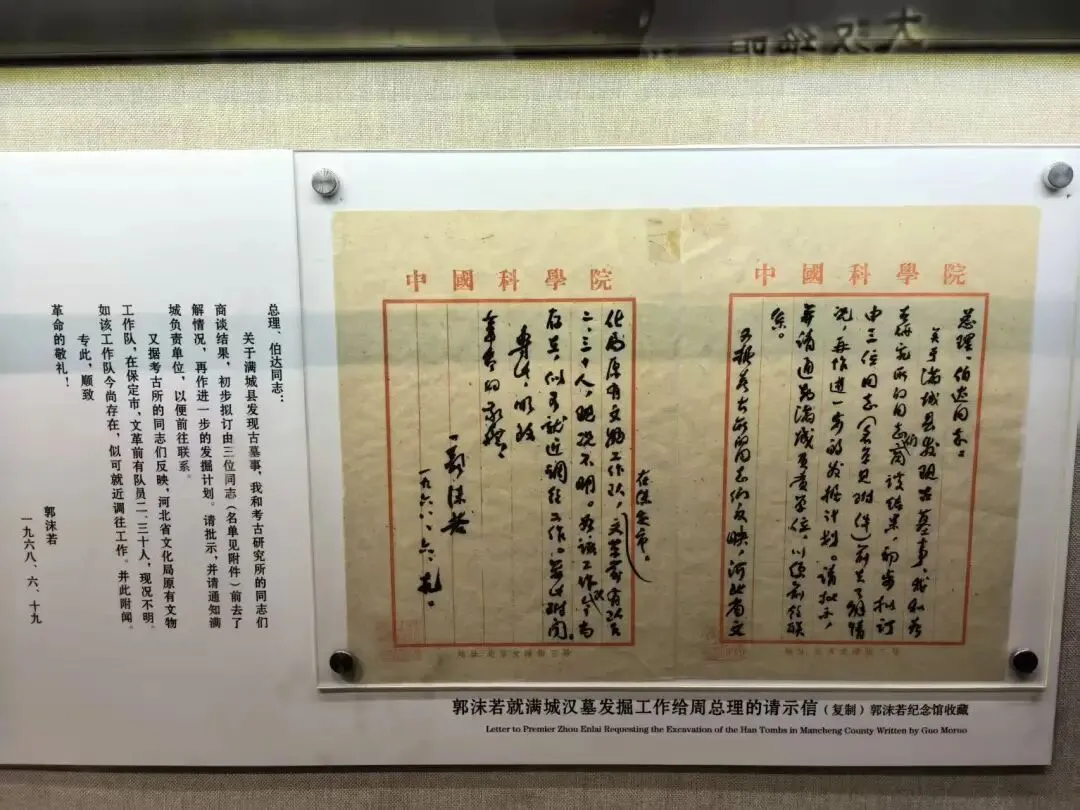 总理、伯达同志：
关于满城县发现古墓事，我和考古研究所的同志们
商谈结果，初步拟订由三位同志（名单见附件）前去了
解情况，再作进一步的发掘计划。请批示，并请通知满
城负责单位，以便前往联系。
又据考古所的同志们反映，河北省文化局原有文物
工作队，在保定市，文革前有队员二、三十人，现况不明。
如该工作队今尚存在，似可就近调往工作。并此附闻。
专此，顺致
革命的敬礼！
郭沫若
一九六八、六、十九
中國科學院
总理、伯达同志：
关于满城县发现古墓事，我和考
古研究所的同志们商谈结果，初步拟订
由三位同志（名单见附件）前去了解情
况，再作进一步的发掘计划。请批示，
并请通知满城负责单位，以便前往联
系。
又据考古所的同志们反映，河北省文
中國科學院
在保定市。
化局原有文物工作队，文革前有队员
二、三十人，现况不明。如该工作队今尚
存在，似可就近调往工作。并此附闻。
专此，顺致
革命的敬礼！
郭沫若
一九六八、六、十九。
郭沫若就满城汉墓发掘工作给周总理的请示信（复制）郭沫若纪念馆收藏
Letter to Premier Zhou Enlai Requesting the Excavation of the Han Tombs in Mancheng County Written by Guo Moruo